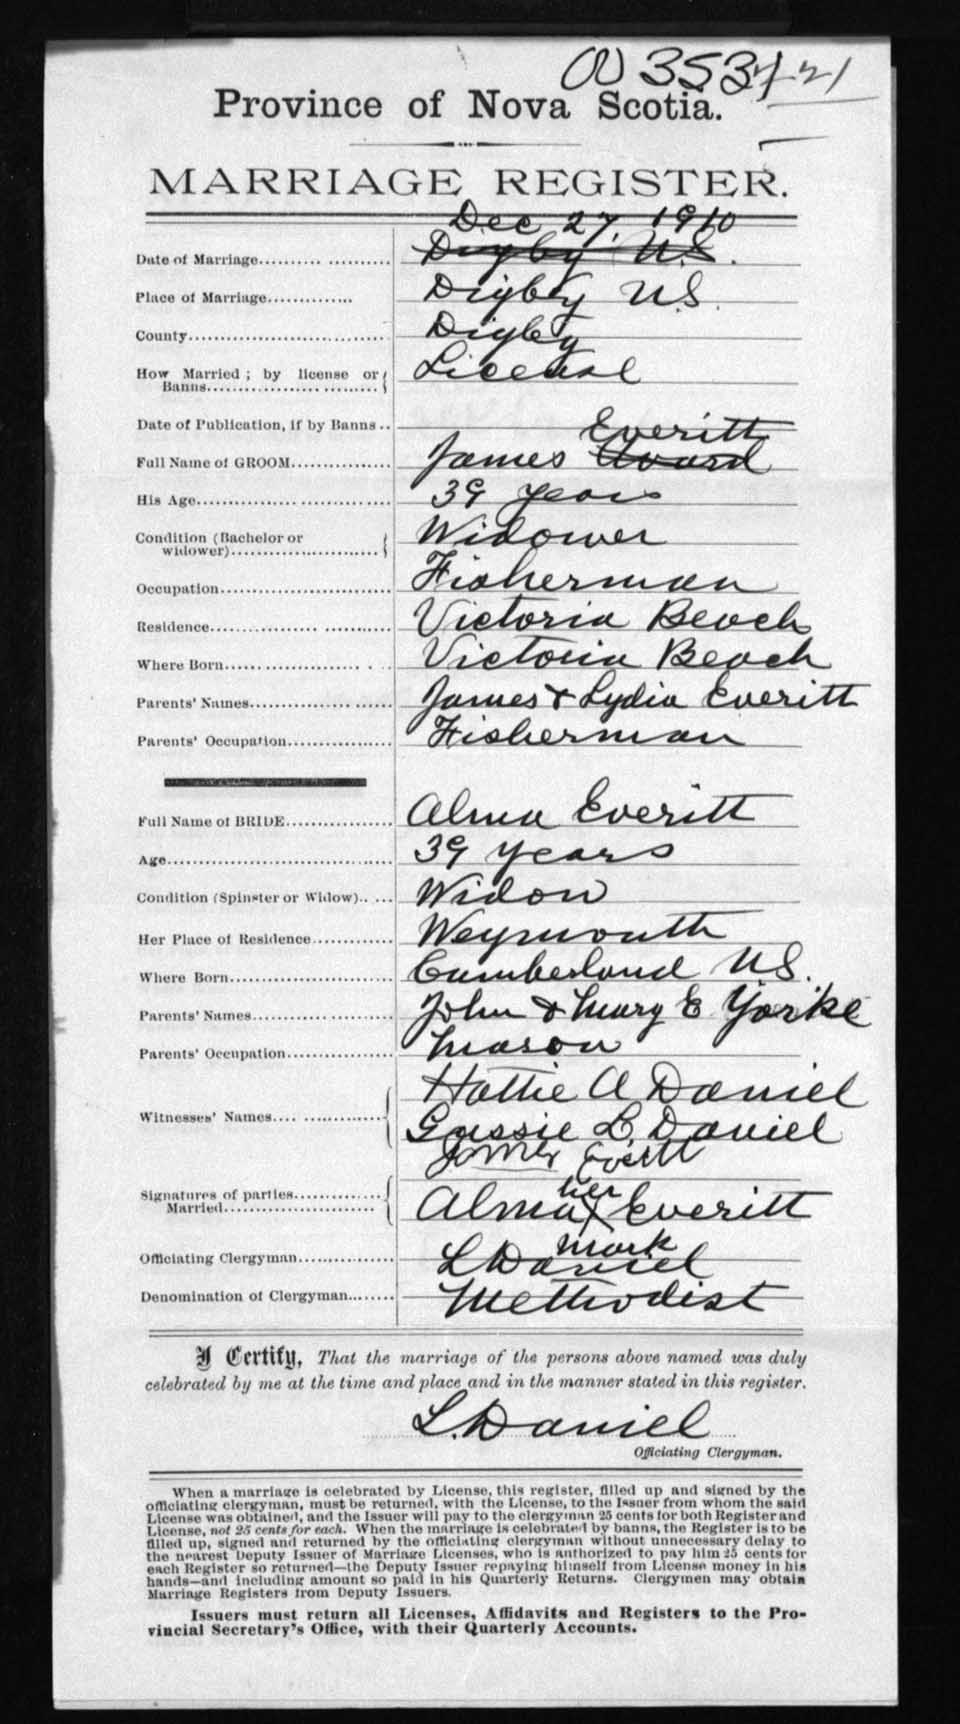 353
21
Province of Nova Scotia.
MARRIAGE REGISTER.
Dec 27, 1910
Date of Marriage.................... Digby N.S.
Place of Marriage.............. Digby N.S.
County................................ Digby
How Married ; by license or License
Banns.............................
Date of Publication, if by Banns ..
Everitt
Full Name of GROOM................ James Avard
His Age............................... 39 years
Condition (Bachelor or Widower
widower)..........................
Occupation........................... Fisherman
Residence............................ Victoria Beach
Where Born........................ Victoria Beach
Parents' Names...................... James & Lydia Everitt
Parents' Occupation................. Fisherman
Full Name of BRIDE................. Alma Everitt
Age................................... 39 years
Condition (Spinster or Widow)..... Widow
Her Place of Residence............. Weymouth
Where Born.......................... Cumberland N.S.
Parents' Names...................... John & Mary E Yorke
Parents' Occupation................. Mason
Hattie A Daniel
Witnesses' Names.................. Gussie L. Daniel
James Everitt
Signatures of parties............... her
Married........................... Alma X Everitt
mark
Officiating Clergyman.............. L Daniel
Denomination of Clergyman........ Methodist
I Certify, That the marriage of the persons above named was duly
celebrated by me at the time and place and in the manner stated in this register.
L. Daniel
Officiating Clergyman.
When a marriage is celebrated by License, this register, filled up and signed by the
officiating clergyman, must be returned, with the License, to the Issuer from whom the said
License was obtained, and the Issuer will pay to the clergyman 25 cents for both Register and
License, not 25 cents for each. When the marriage is celebrated by banns, the Register is to be
filled up, signed and returned by the officiating clergyman without unnecessary delay to
the nearest Deputy Issuer of Marriage Licenses, who is authorized to pay him 25 cents for
each Register so returned—the Deputy Issuer repaying himself from License money in his
hands—and including amount so paid in his Quarterly Returns. Clergymen may obtain
Marriage Registers from Deputy Issuers.
Issuers must return all Licenses, Affidavits and Registers to the Pro-
vincial Secretary's Office, with their Quarterly Accounts.